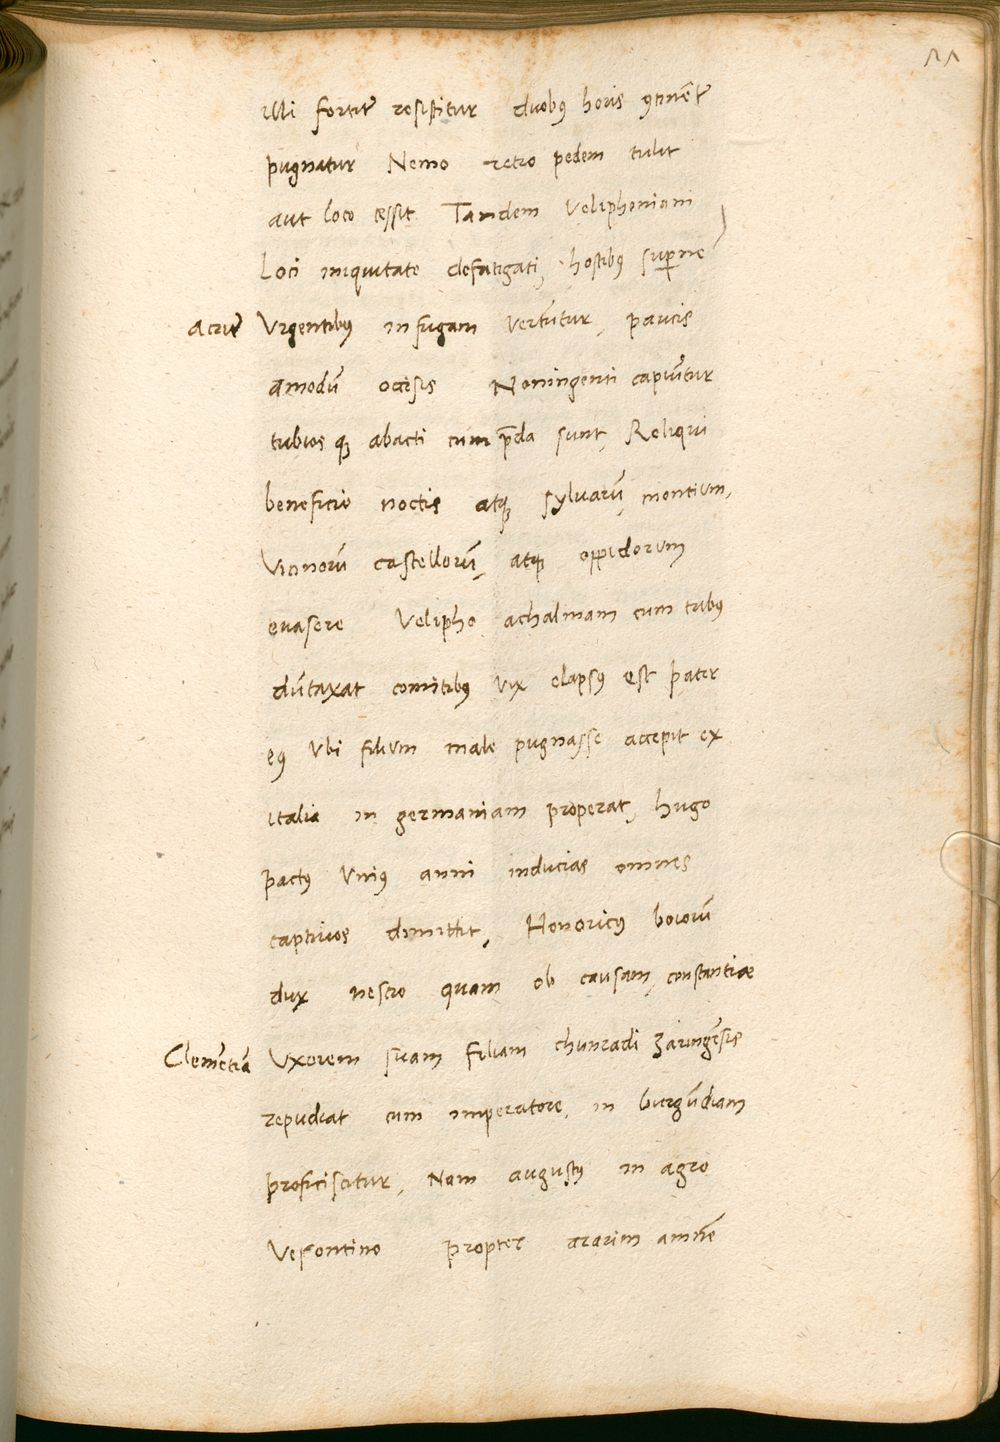 illi fortit᷑ resistitur duobꝰ horis ꝯtinēt᷑
pugnatur Nemo retro pedem tulit
aut loco cessit Tandem Veliphoniani
Loci iniquitate defatigati, hostibꝰ suꝑne
acrit᷑ Vrgentibꝰ in fugam vertūtur, paucis
āmodū occisis Noningenti capiūtur
tubios qꝫ abacti cum p̄da sunt, Reliqui
beneficio noctis atqꝫ sylvarū, montium,
Vicinorū castellorū, atqꝫ oppidorum
evasere Velipho achalmam cum tribꝰ
dūtaxat comitibꝰ vix elapsꝰ est pater
eꝰ Vbi filium male pugnasse accepit ex
italia in germaniam properat, hugo
pactꝰ Vniꝰ anni inducias omnes
captivos dimittit, Henricꝰ boiorū
dux nescio quam ob causam, constantiae
Clemētiā Vxorem suam filiam chunradi Zaringēsis
repudiat cum imperatore, in burgūdiam
proficiscitur, Nam augustꝰ in agro
Vesontino propter ararim amnē